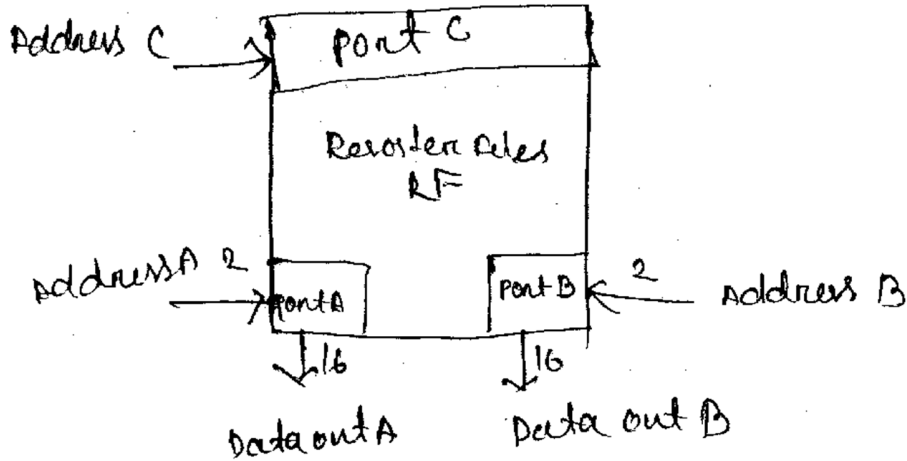 Address C
Port C
Reroster Feles
RF
Address A 2
Port A
Port B
2
Address B
16
16
Data out A
Data out B